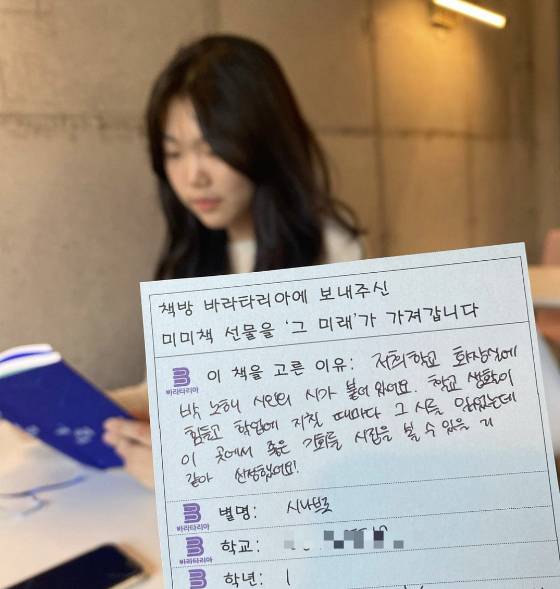 책방 바라타리아에 보내주신
미미책 선물을 '그 미래'가 가져갑니다
바라타리아 이 책을 고른 이유: 저희학교 화장실에
박노해 시인의 시가 붙어 있어요. 학교 생활이
힘들고 학업에 지칠 때마다 그 시를 읽었는데
이 곳에서 좋은 기회를 시집을 볼 수 있을 거
같아 선정했어요!
바라타리아 별명: 시나브로
바라타리아 학교:
학년: 1